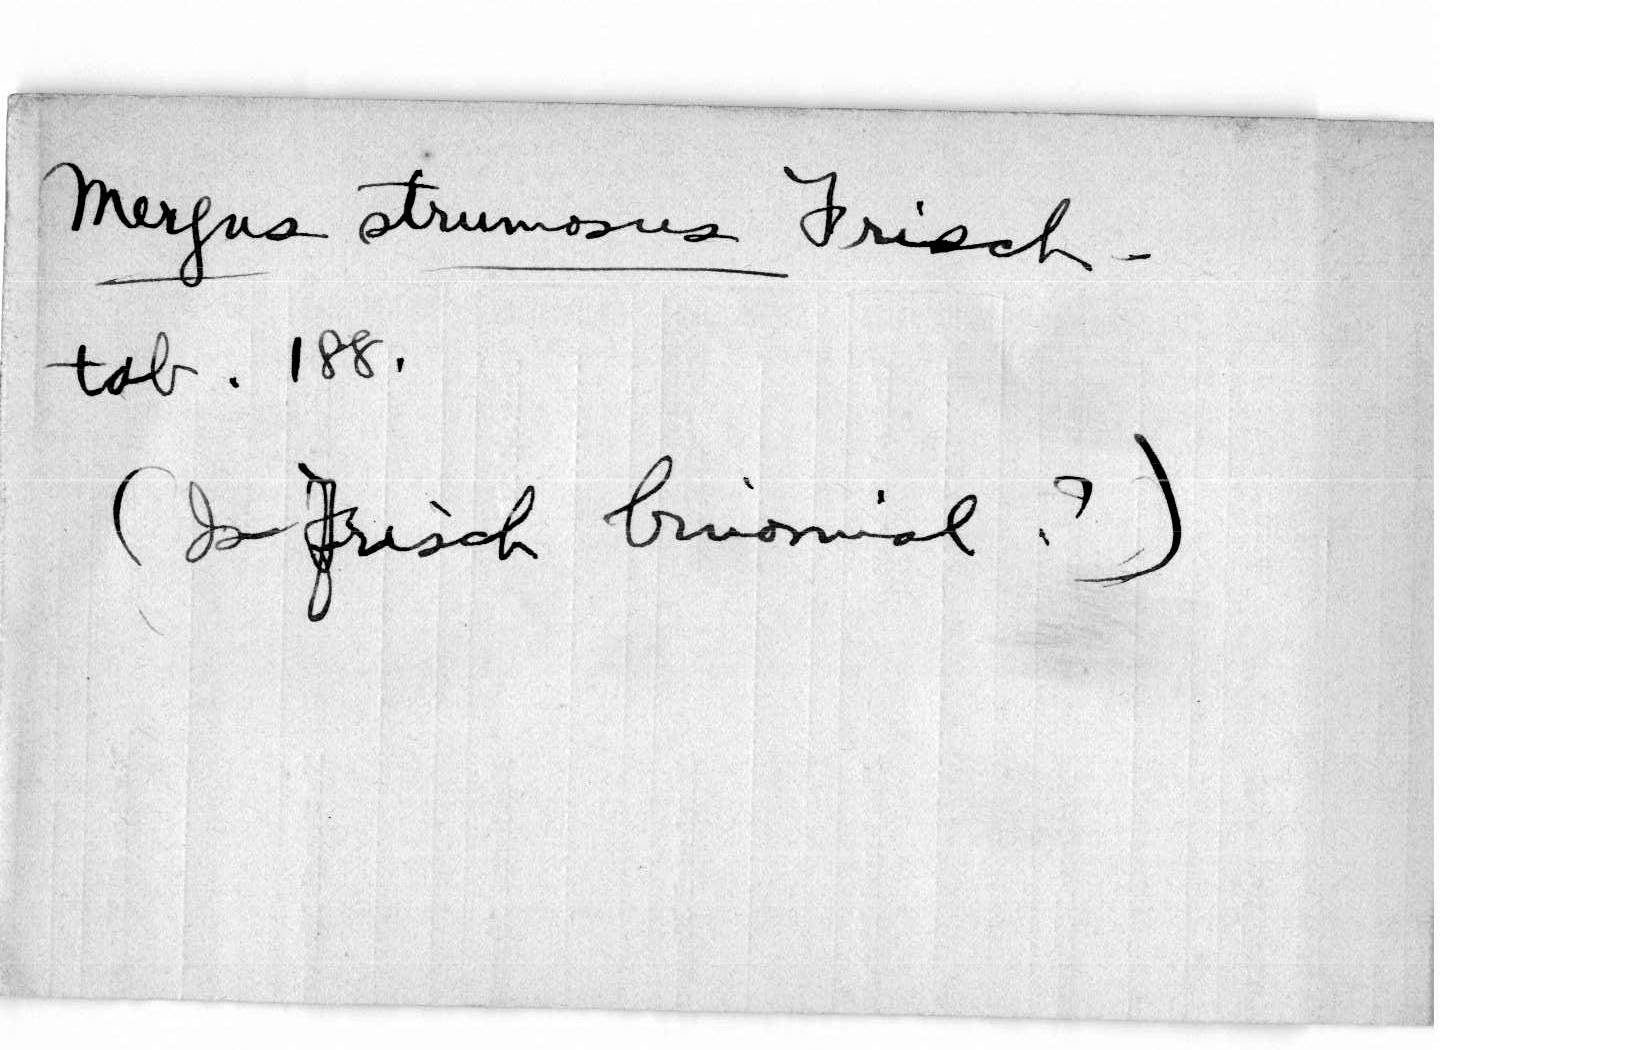 Mergus strumosus Frisch -
tab. 188.
(Is Frisch binomial?)